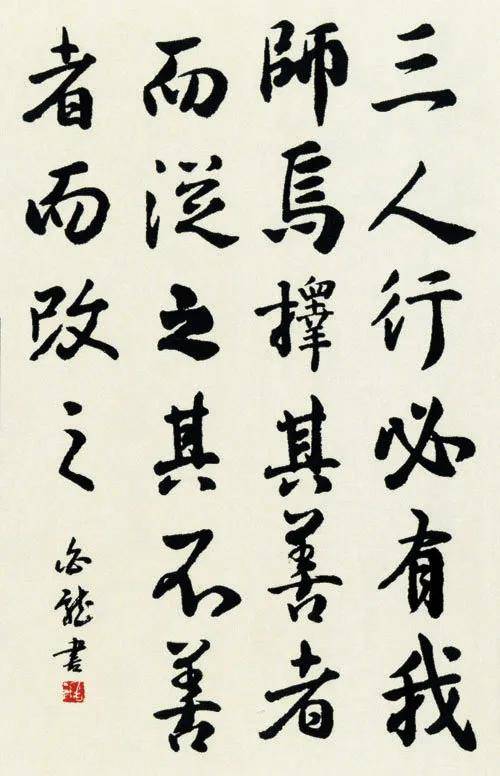 三人行必有我
師焉擇其善者
而從之其不善
者而改之
龍書